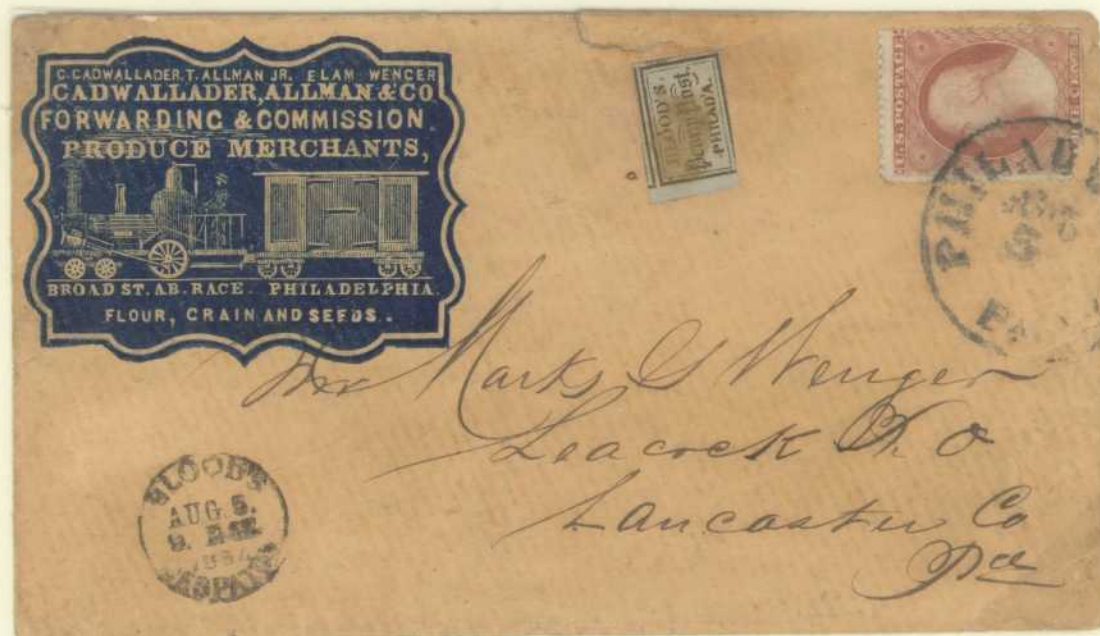 C. CADWALLADER, T. ALLMAN JR. ELAM WENGER
CADWALLADER, ALLMAN & CO
FORWARDING & COMMISSION
PRODUCE MERCHANTS,
BROAD ST. AB. RACE. PHILADELPHIA.
FLOUR, GRAIN AND SEEDS.
BLOOD'S
Penny Post.
PHILADA.
U.S. POSTAGE
CENTS
PHILADE
Mr Marks G Wenger
Leacock P. O
Lancaster Co
Pa
BLOOD'S
AUG. 5.
DESPATCH